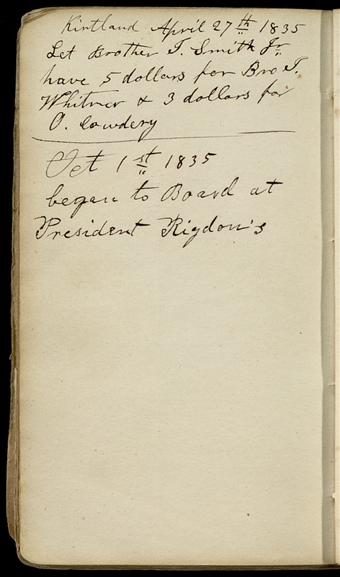 Kirtland April 27th 1835
Let Brother J. Smith Jr.
have 5 dollars for Bro J.
Whitmer & 3 dollars for
O. Cowdery
Oct 1st 1835
began to Board at
President Rigdon's